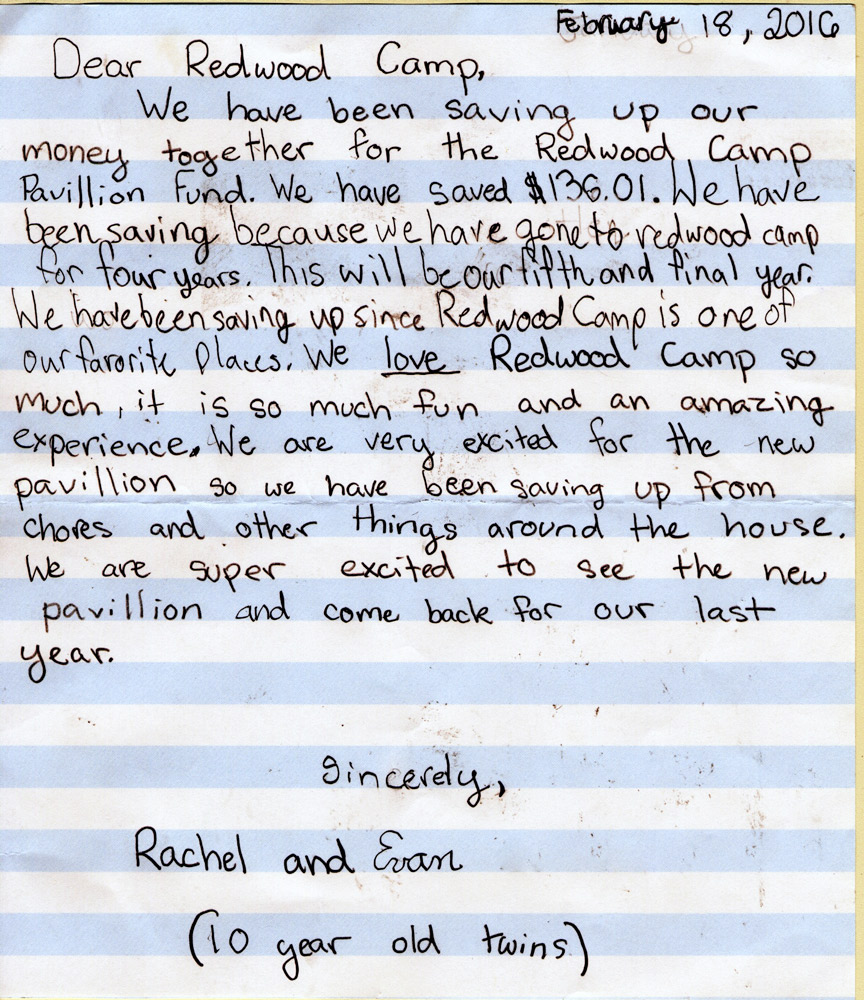 February 18, 2016
Dear Redwood Camp,
We have been saving up our
money together for the Redwood Camp
Pavillion Fund. We have saved $136.01. We have
been saving because we have gone to redwood camp
for four years. This will be our fifth and final year.
We have been saving up since Redwood Camp is one of
our favorite places. We love Redwood Camp so
much, it is so much fun and an amazing
experience. We are very excited for the new
pavillion so we have been saving up from
chores and other things around the house.
We are super excited to see the new
pavillion and come back for our last
year.
Sincerely,
Rachel and Evan
(10 year old twins)